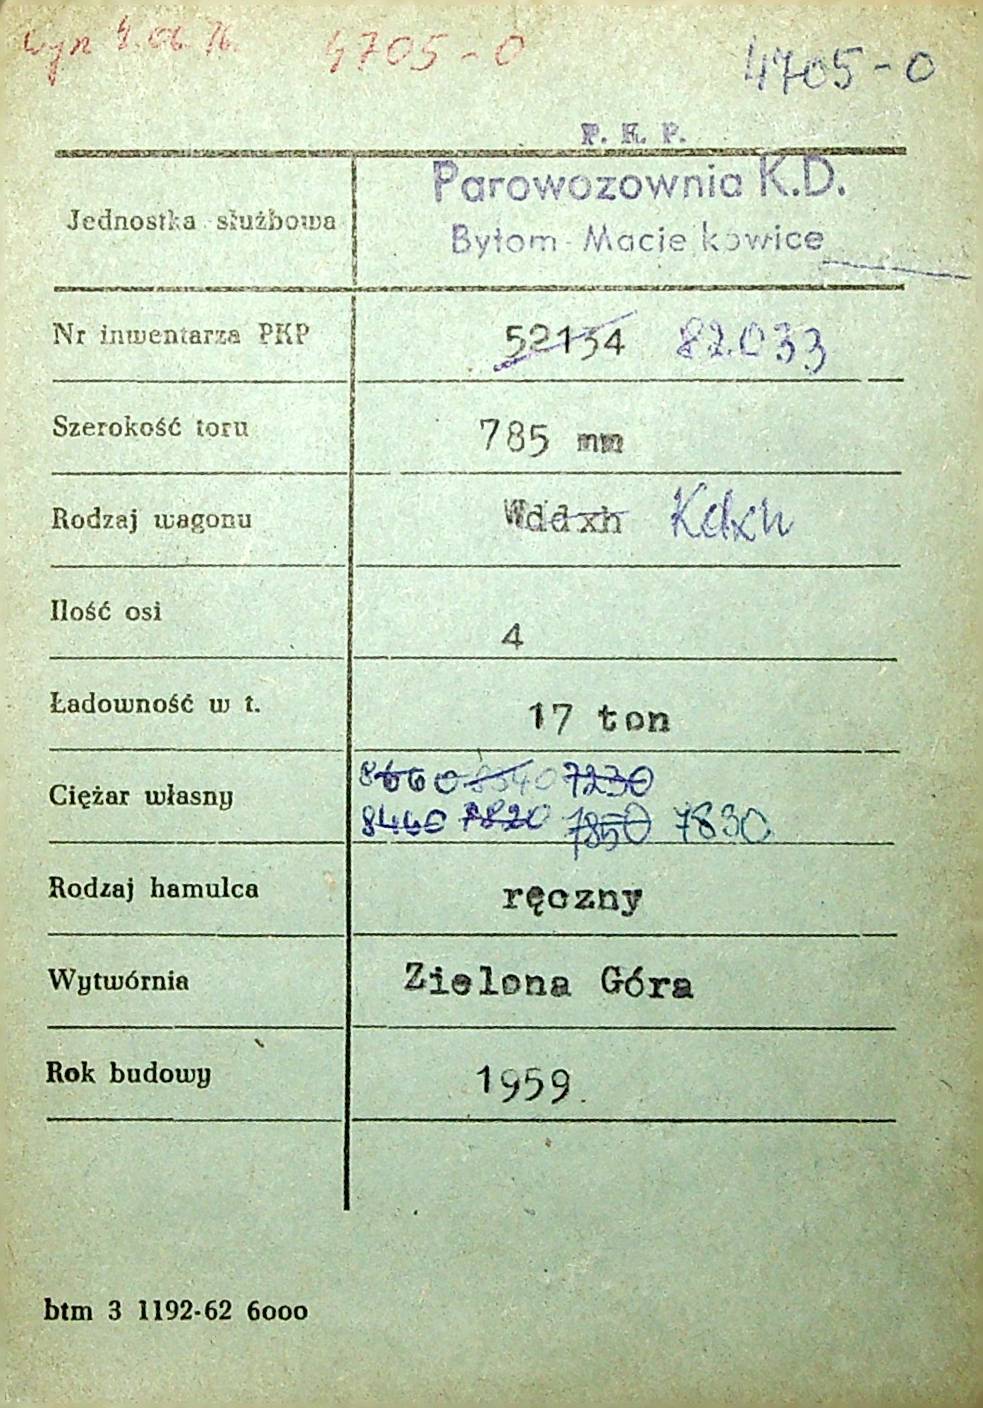 wyn 4.06.76. 4705-0 4705-0
P. K. P.
Jednostka służbowa Parowozownia K.D.
Bytom-Maciejkowice
Nr inwentarza PKP 52134 82.033
Szerokość toru 785 mm
Rodzaj wagonu Wddxh Kdxh
Ilość osi 4
Ładowność w t. 17 ton
Ciężar własny 8660 8540 7230
8440 7820 7850 7830
Rodzaj hamulca ręczny
Wytwórnia Zielona Góra
Rok budowy 1959.
btm 3 1192-62 6000